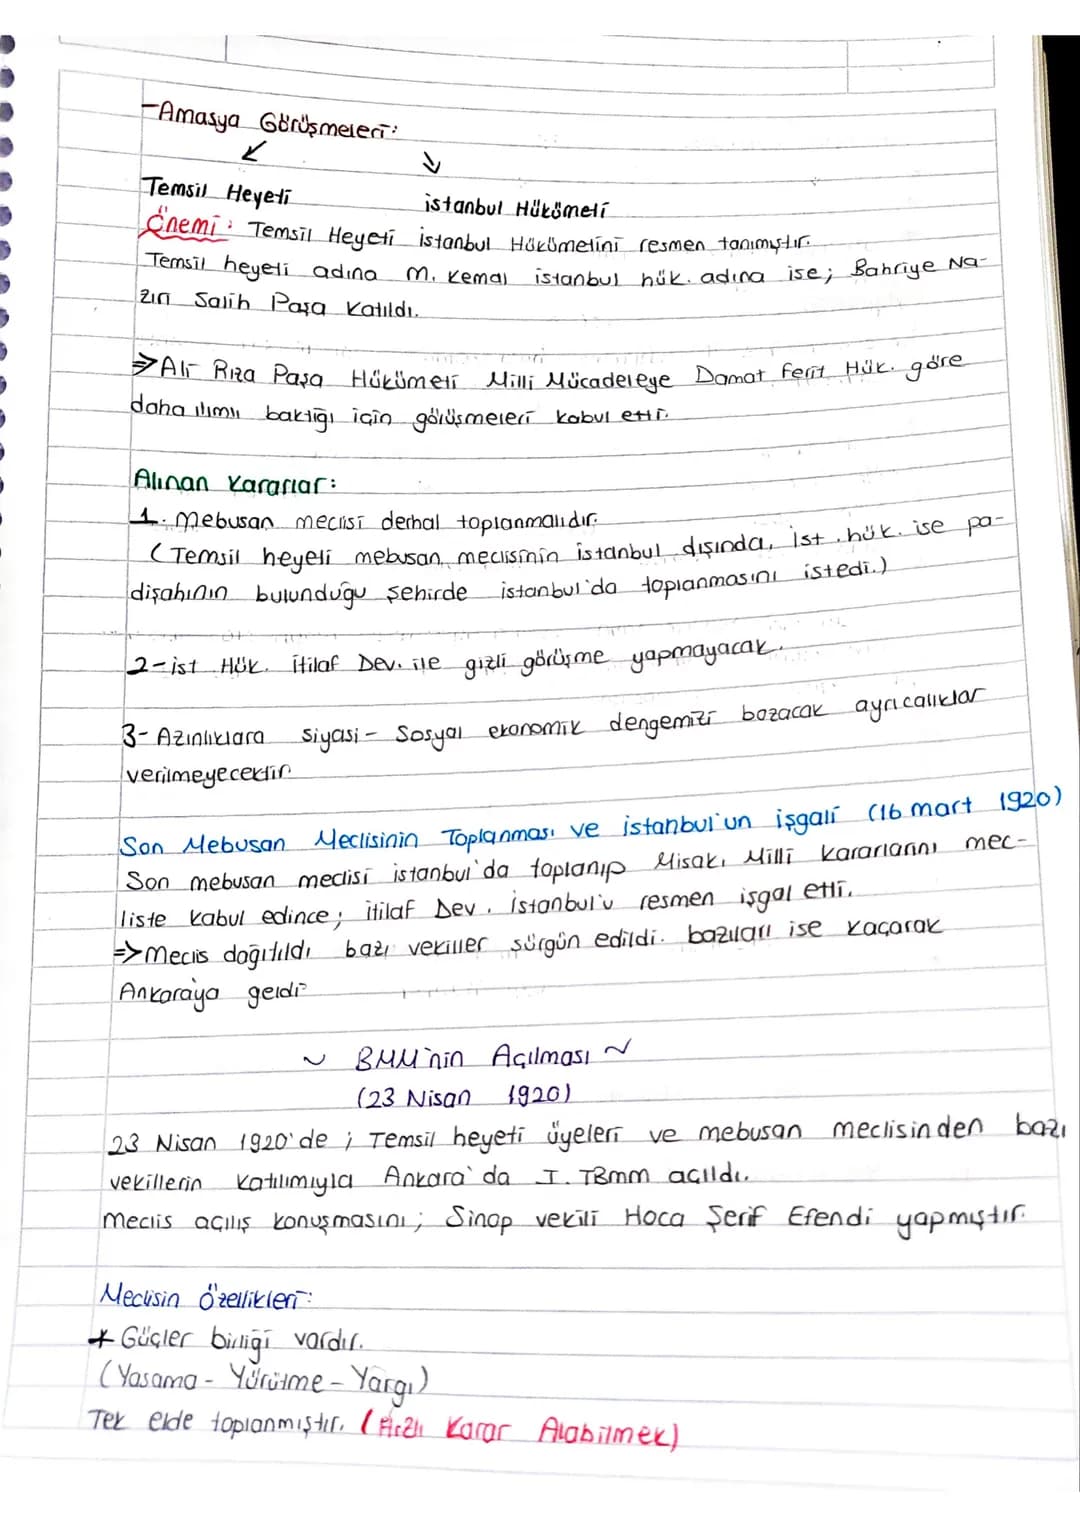 -Amasya Görüşmeleri:
Temsil Heyeti istanbul Hükümeti
Önemi: Temsil Heyeti istanbul Hükümetini resmen tanımıştır.
Temsil heyeti adına M. Kemal istanbul hük. adına ise; Bahriye Na-
zırı Salih Paşa Katıldı.
⇒Ali Rıza Paşa Hükümeti Milli Mücadeleye Damat Ferit Hük. göre
daha ılımlı baktığı için görüşmeleri kabul etti.
Alınan Kararlar:
1. Mebusan meclisi derhal toplanmalıdır.
(Temsil heyeti mebusan meclisinin istanbul dışında, ist. hük. ise pa-
dişahının bulunduğu şehirde istanbul'da toplanmasını istedi.)
2-ist Hük. itilaf Dev. ile gizli görüşme yapmayacak.
3- Azınlıklara siyasi - Sosyal ekonomik dengemizi bozacak ayrıcalıklar
verilmeyecektir.
Son Mebusan Meclisinin Toplanması ve istanbul'un işgali (16 mart 1920)
Son mebusan meclisi istanbul'da toplanıp Misakı Milli kararlarını mec-
liste kabul edince; itilaf Dev. istanbul'u resmen işgal etti.
⇒Meclis dağıtıldı bazı vekiller sürgün edildi. bazıları ise kaçarak
Ankaraya geldi
~ BMM'nin Açılması ~
(23 Nisan 1920)
23 Nisan 1920'de ; Temsil heyeti üyeleri ve mebusan meclisinden bazı
vekillerin katılımıyla Ankara'da I. TBmm açıldı.
Meclis açılış konuşmasını; Sinop vekili Hoca Şerif Efendi yapmıştır.
Meclisin Özellikleri:
* Güçler birliği vardır.
(Yasama - Yürütme - Yargı)
Tek elde toplanmıştır. (Hızlı Karar Alabilmek)